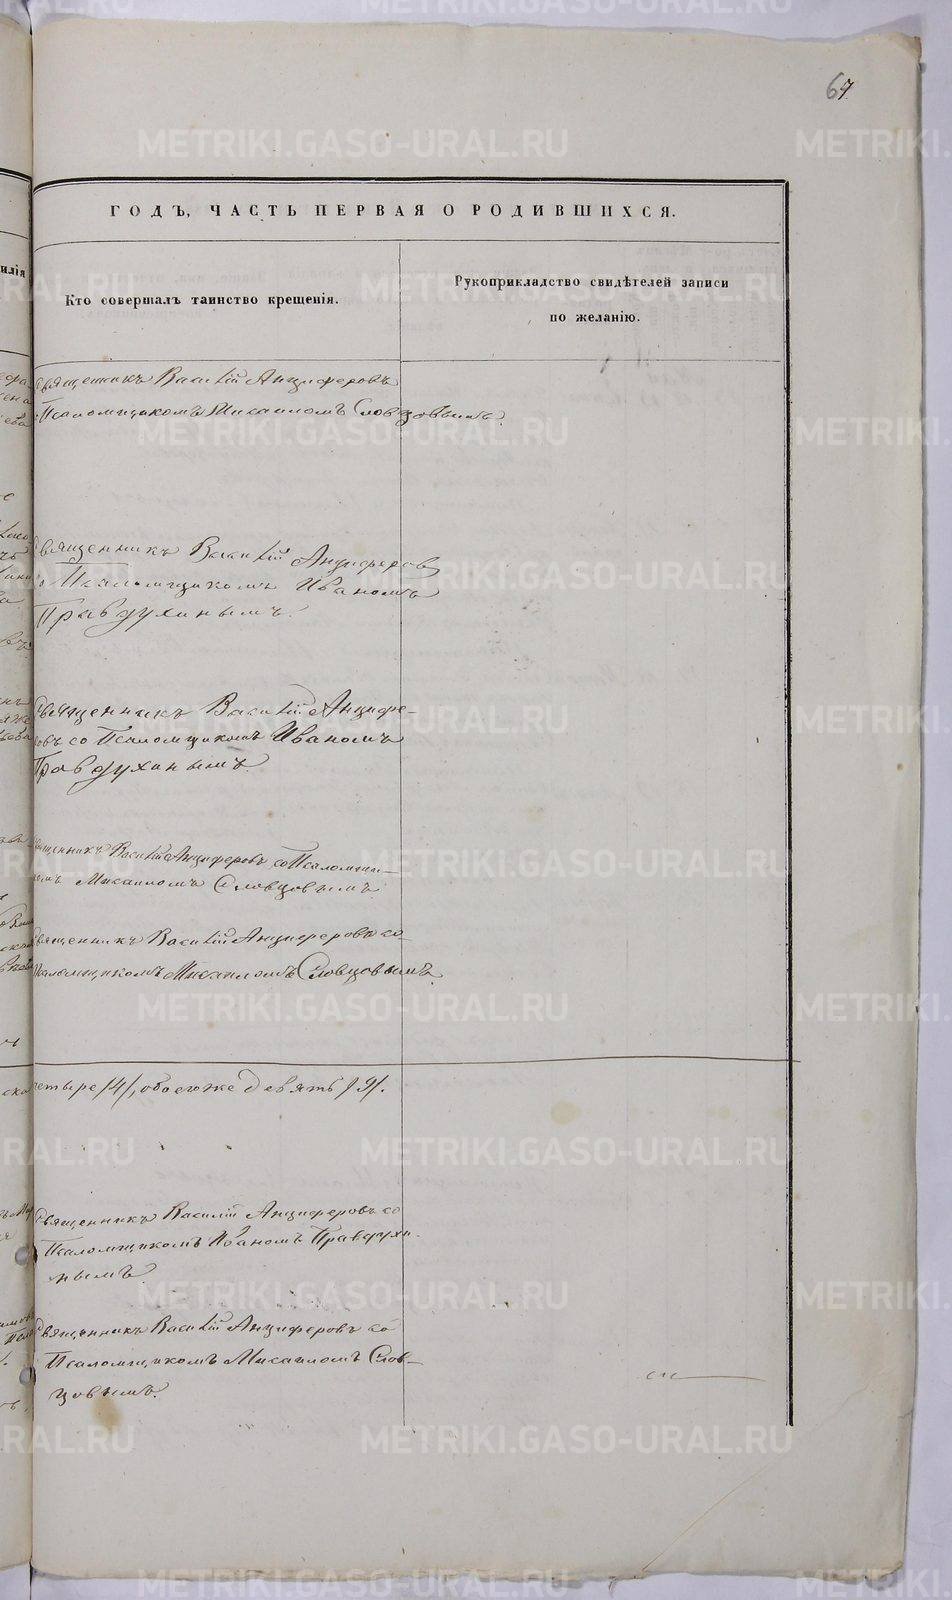 67
ГОДЪ, ЧАСТЬ ПЕРВАЯ О РОДИВШИХСЯ.
илія
Кто совершалъ таинство крещенія.
Рукоприкладство свидѣтелей записи
по желанію.
Священникъ Василій Анциферовъ
Псаломщикомъ Мисаиломъ Словцовымъ.
Священникъ Василій Анциферов
со Псаломщикомъ Иваномъ
Правдухинымъ.
Священникъ Василій Анцифе-
ровъ со Псаломщикомъ Иваномъ
Правдухинымъ.
Священникъ Василій Анциферовъ со Псаломщи-
комъ Мисаиломъ Словцовымъ.
Священникъ Василій Анциферовъ со
Псаломщикомъ Мисаиломъ Словцовымъ.
четыре /4/, обоегоже девять /9/.
Священникъ Василій Анциферовъ со
Псаломщикомъ Иваномъ Правдухи-
нымъ.
Священникъ Василій Анциферовъ со
Псаломщикомъ Мисаиломъ Слов-
цовымъ.
METRIKI.GASO-URAL.RU